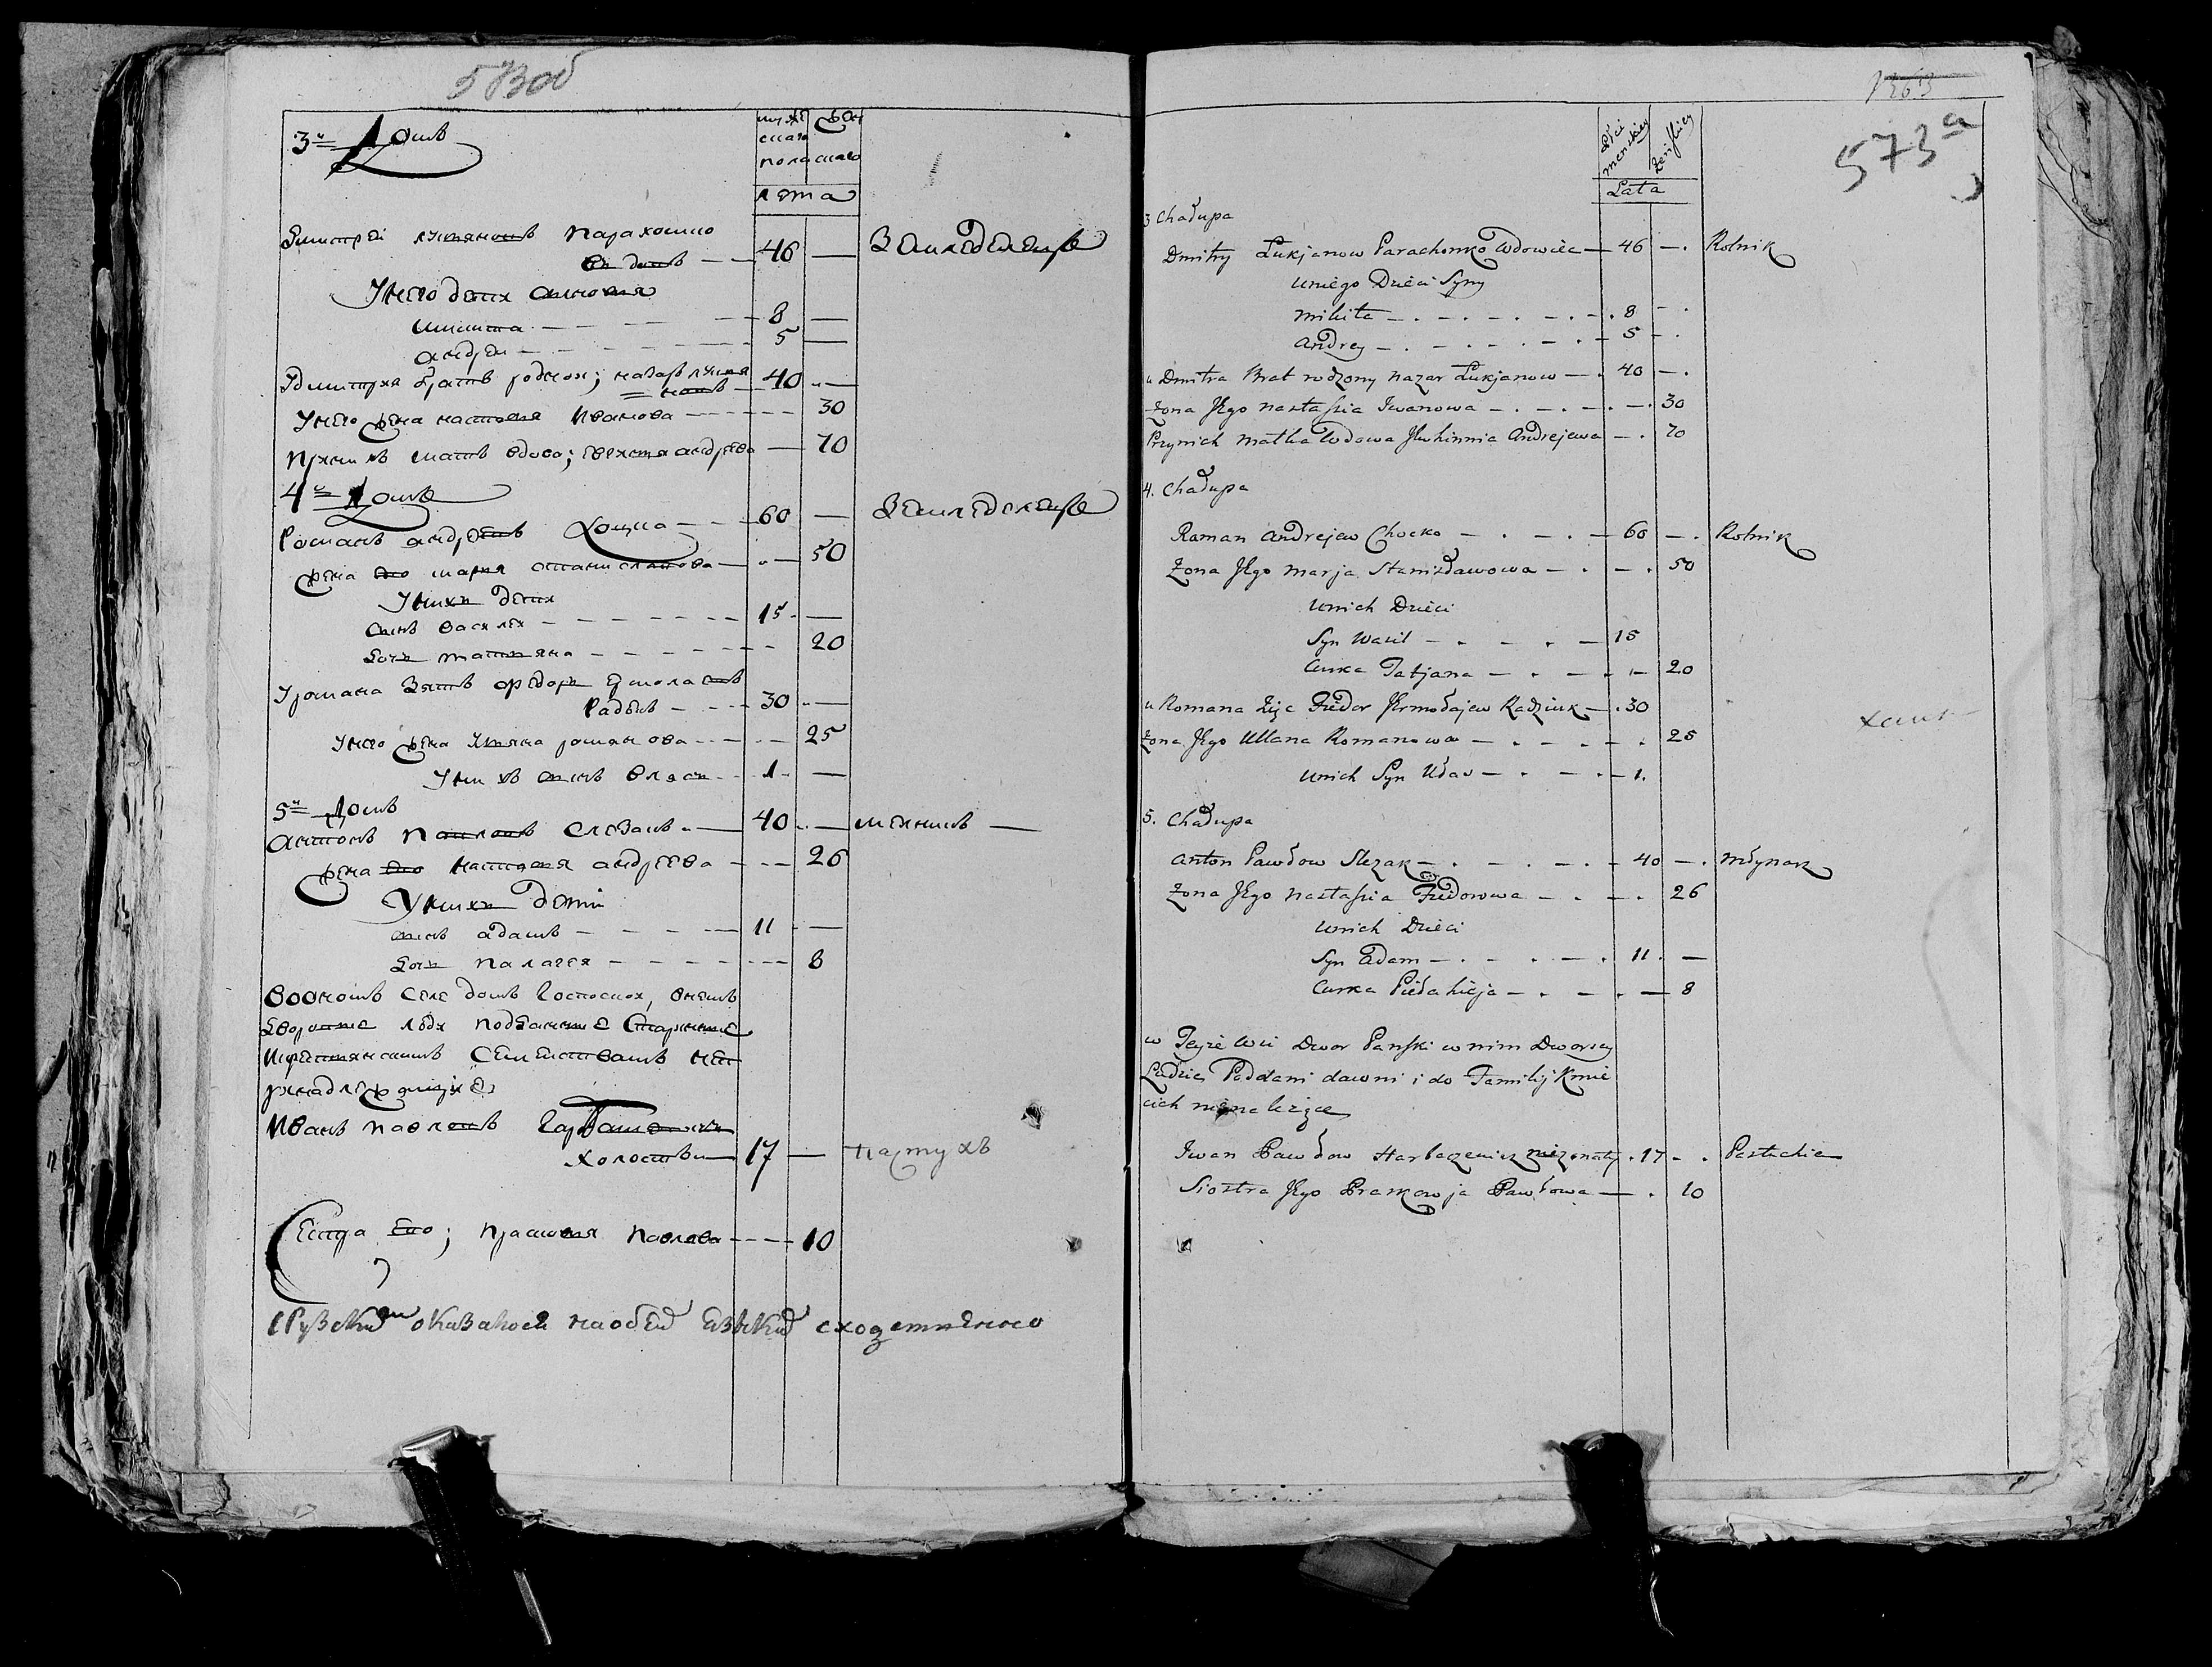 573 об
3й Домъ
мужескаго жен
пола скаго
лета
Дмитрей лукяновъ парахонко
вдовъ — 46 — Земледелецъ
У него дети сыновя
микита — 8 —
андреи — 5 —
У дмитрия братъ родной; назаръ лукяновъ — 40 —
У него жена настасия Иванова — 30
При нихъ мать вдова; евхимя андреева — 70
4й Домъ
Романъ андреевъ Хоцка — 60 — Земледелецъ
жена его марья станиславова — 50
У нихъ дети
сынъ василей — 15 —
Дочь татияна — 20
У романа зять федоръ Ермолаевъ
Радюкъ — 30 —
У него жена Уляна романова — 25
У нихъ сынъ власъ — 1 —
5й Домъ
антонъ павловъ слезакъ — 40 — мелникъ —
жена его настасия андреева — 26
У нихъ дети
сынъ адамъ — 11 —
Дочь палагея — 8
в оономъ селе домъ господской, в немъ
Дворовые люди подданные старинные
и крестянскимъ семействамъ не
принадлежащие
Иванъ павловъ Гарбачевичъ
холостъ — 17 — пастухъ
Сестра его; прасковя павлова — 10
с Рускимъ оказалося на обеи языки сходственно
573а
3 Chałupa
Płci męnskiey żeńskiey
Lata
Dmitry Łukjanow Parachonko Wdowiec — 46 — Rolnik
U niego Dzieci Syny
Mikita — 8 —
Andrey — 5 —
u Dmitra Brat rodzony Nazar Łukjanow — 40 —
Żona Jego Nastassia Iwanowa — 30
Przynich Matka Wdowa Jewhinnia Andrejewa — 70
4. Chałupa
Raman Andrejew Chocko — 60 — Rolnik
Żona Jego Marja Stanisławowa — 50
Unich Dzieci
Syn Wasil — 15
Curka Tatjana — 20
u Romana Zięc Fiedor Jermołajew Radziuk — 30
Żona Jego Ullana Romanowa — 25
Unich Syn Ułas — 1.
5. Chałupa
Anton Pawłow Slezak — 40 — Młynarz
Żona Jego Nastassia Fiedorowa — 26
Unich Dzieci
Syn Adam — 11 —
Curka Piełahieja — 8
w Teyże Wsi Dwor Panski w nim Dworscy
Ludzie Poddani dawni i do Familij Kmie
cich nienależące
Iwan Pawłow Harbaczewicz nieżonaty 17 — Pastuch
Siostra Jego Praskowja Pawłowa — 10